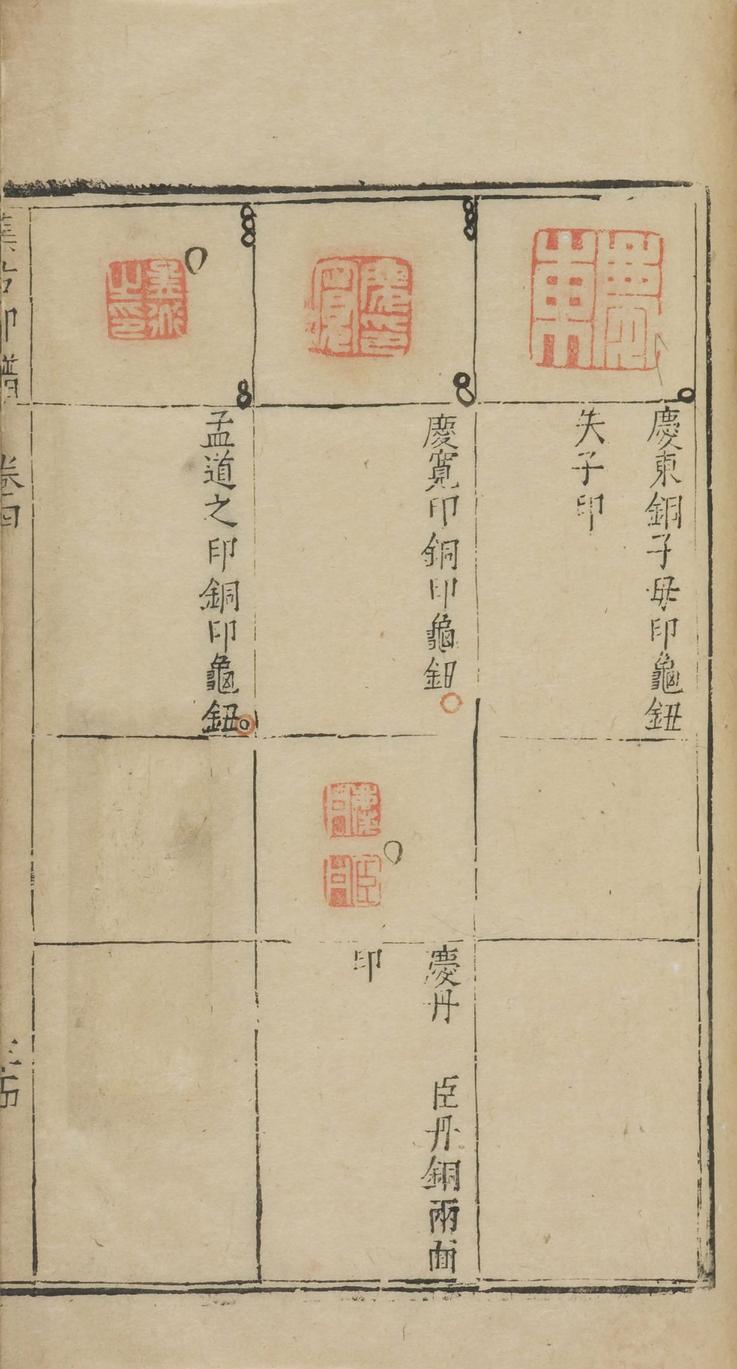 慶東銅子母印龜鈕
失子印
慶寬印銅印龜鈕
慶丹　臣丹銅兩面
印
孟道之印銅印龜鈕
集古印譜　卷四